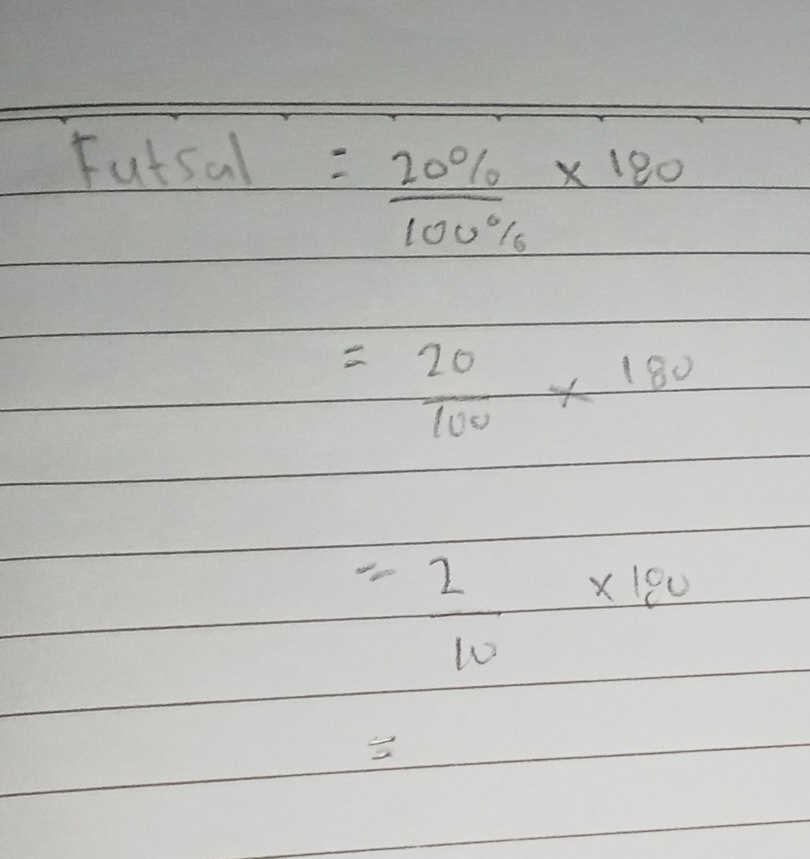 Futsal = 20% / 100% × 180
= 20 / 100 × 180
= 2 / 10 × 180
=